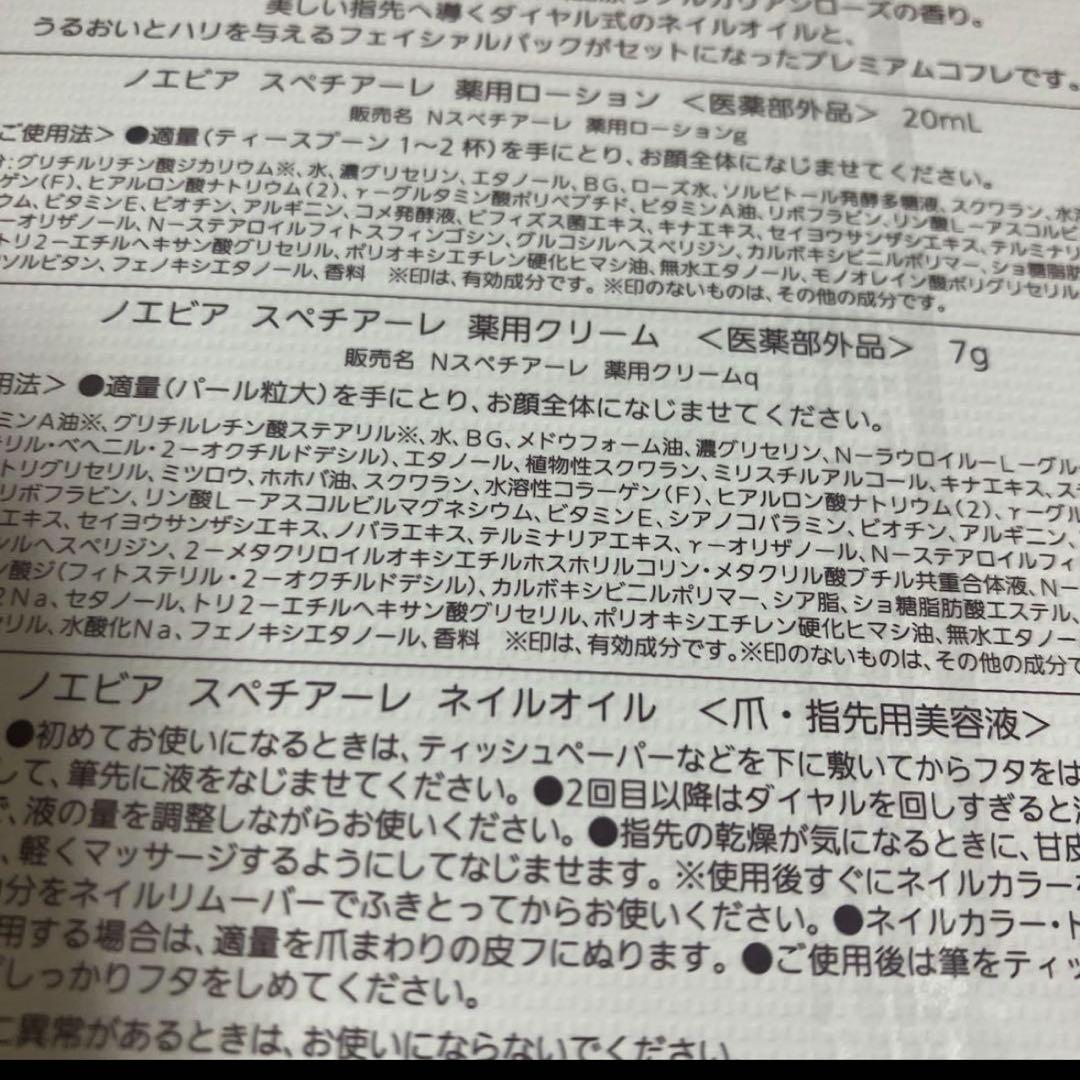 美しい指先へ導くダイヤル式のネイルオイルと、
うるおいとハリを与えるフェイシャルパックがセットになったプレミアムコフレです。
ノエビア スペチアーレ 薬用ローション <医薬部外品> 20mL
販売名 Nスペチアーレ 薬用ローションg
ご使用法> ●適量(ティースプーン 1〜2 杯)を手にとり、お顔全体になじませてください。
分:グリチルリチン酸ジカリウム※、水、濃グリセリン、エタノール、BG、ローズ水、ソルビトール発酵多糖液、スクワラン、水溶
ゲン(F)、ヒアルロン酸ナトリウム(2)、γ−グルタミン酸ポリペプチド、ビタミンA油、リボフラビン、リン酸L−アスコルビ
ウム、ビタミンE、ビオチン、アルギニン、コメ発酵液、ビフィズス菌エキス、キナエキス、セイヨウサンザシエキス、テルミナリ
−オリザノール、N−ステアロイルフィトスフィンゴシン、グルコシルヘスペリジン、カルボキシビニルポリマー、ショ糖脂肪
トリ2−エチルヘキサン酸グリセリル、ポリオキシエチレン硬化ヒマシ油、無水エタノール、モノオレイン酸ポリグリセリル
ソルビタン、フェノキシエタノール、香料 ※印は、有効成分です。※印のないものは、その他の成分です。
ノエビア スペチアーレ 薬用クリーム <医薬部外品> 7g
販売名 Nスペチアーレ 薬用クリームq
用法> ●適量(パール粒大)を手にとり、お顔全体になじませてください。
ミンA油※、グリチルレチン酸ステアリル※、水、BG、メドウフォーム油、濃グリセリン、N−ラウロイル−L−グル
リル・ベヘニル・2−オクチルドデシル)、エタノール、植物性スクワラン、ミリスチルアルコール、キナエキス、ス
トリグリセリル、ミツロウ、ホホバ油、スクワラン、水溶性コラーゲン(F)、ヒアルロン酸ナトリウム(2)、γ−グル
リボフラビン、リン酸L−アスコルビルマグネシウム、ビタミンE、シアノコバラミン、ビオチン、アルギニン、
エキス、セイヨウサンザシエキス、ノバラエキス、テルミナリアエキス、γ−オリザノール、N−ステアロイルフィ
シルヘスペリジン、2−メタクリロイルオキシエチルホスホリルコリン・メタクリル酸ブチル共重合体液、N−
ン酸ジ(フィトステリル・2−オクチルドデシル)、カルボキシビニルポリマー、シア脂、ショ糖脂肪酸エステル、
2Na、セタノール、トリ2−エチルヘキサン酸グリセリル、ポリオキシエチレン硬化ヒマシ油、無水エタノー
リル、水酸化Na、フェノキシエタノール、香料 ※印は、有効成分です。※印のないものは、その他の成分で
ノエビア スペチアーレ ネイルオイル <爪・指先用美容液>
●初めてお使いになるときは、ティッシュペーパーなどを下に敷いてからフタをは
して、筆先に液をなじませてください。●2回目以降はダイヤルを回しすぎると
で、液の量を調整しながらお使いください。●指先の乾燥が気になるときに、甘皮
、軽くマッサージするようにしてなじませます。※使用後すぐにネイルカラー
分をネイルリムーバーでふきとってからお使いください。●ネイルカラー・ト
用する場合は、適量を爪まわりの皮フにぬります。●ご使用後は筆をティッ
しっかりフタをしめてください。
に異常があるときは、お使いにならないでください